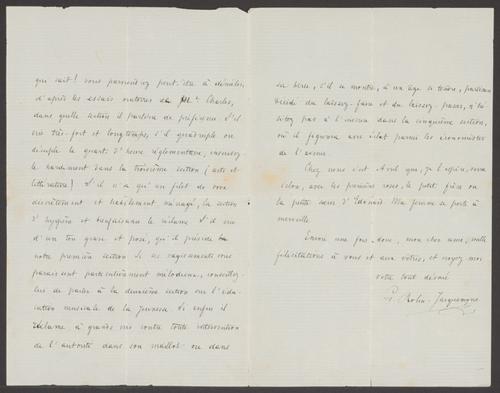 qui sait! vous parviendrez peut-être à démêler,
d'après les essais oratoires de Mr Charles,
dans quelle section il parlera de préférence. S'il
crie très-fort et longtemps, s'il quadruple ou
décuple le quart d'heure réglementaire, envoyez-
le hardiment dans la troisième section (arts et
littérature). S'il n'a qu'un filet de voix
discrètement et habilement ménagé, la section
d'hygiène et bienfaisance le réclame. S'il crie
d'un ton grave et posé, qu'il préside
notre première section. Si ses vagissements vous
paraissent particulièrement mélodieux, conseillez-
lui de parler à la deuxième section sur l'édu-
cation musicale de la jeunesse. Si enfin il
réclame à grands cris contre toute intervention
de l'autorité dans son maillot ou dans
un berceau, s'il se montre, à un âge si tendre, partisan
décidé du laissez-faire et du laissez-passer, n'hé-
sitez pas à l'inscrire dans la cinquième section,
où il figurera avec éclat parmi les économistes
de l'avenir.
Chez nous c'est Avril que, je l'espère, verra
éclore, avec les premières roses, le petit frère ou
la petite sœur d'Édouard. Ma femme se porte à
merveille.
Encore une fois donc, mon cher ami, mille
félicitations à vous et aux vôtres, et croyez-moi
votre tout dévoué
G. Rolin-Jaequemyns